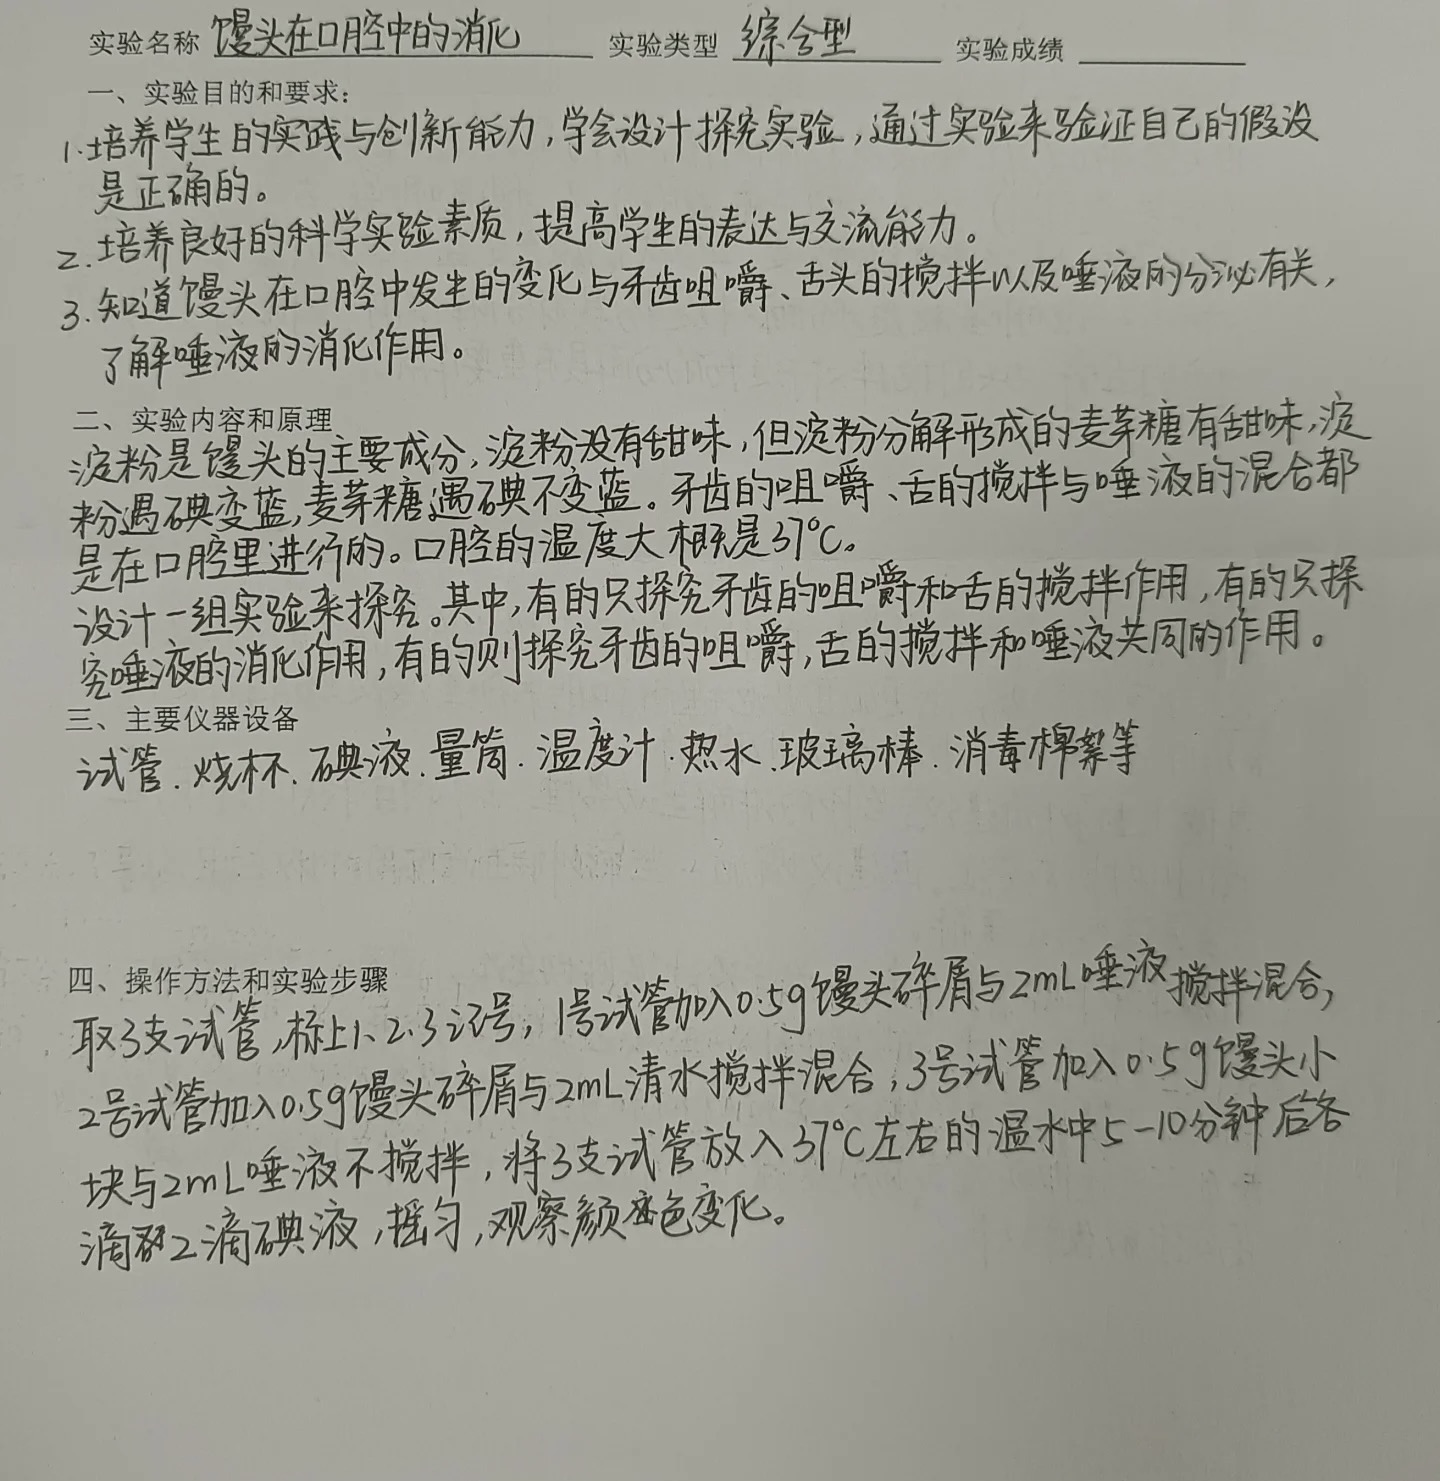 实验名称 馒头在口腔中的消化 实验类型 综合型 实验成绩
一、实验目的和要求：
1.培养学生的实践与创新能力，学会设计探究实验，通过实验来验证自己的假设
是正确的。
2.培养良好的科学实验素质，提高学生的表达与交流能力。
3.知道馒头在口腔中发生的变化与牙齿咀嚼、舌头的搅拌以及唾液的分泌有关，
了解唾液的消化作用。
二、实验内容和原理
淀粉是馒头的主要成分，淀粉没有甜味，但淀粉分解形成的麦芽糖有甜味，淀
粉遇碘变蓝，麦芽糖遇碘不变蓝。牙齿的咀嚼、舌的搅拌与唾液的混合都
是在口腔里进行的。口腔的温度大概是37℃。
设计一组实验来探究。其中，有的只探究牙齿的咀嚼和舌的搅拌作用，有的只探
究唾液的消化作用，有的则探究牙齿的咀嚼，舌的搅拌和唾液共同的作用。
三、主要仪器设备
试管．烧杯．碘液．量筒．温度计．热水．玻璃棒．消毒棉絮等
四、操作方法和实验步骤
取3支试管，标上1、2.3记号，1号试管加入0.5g馒头碎屑与2mL唾液搅拌混合，
2号试管加入0.5g馒头碎屑与2mL清水搅拌混合，3号试管加入0.5g馒头小
块与2mL唾液不搅拌，将3支试管放入37℃左右的温水中5-10分钟后各
滴2滴碘液，摇匀，观察颜色变化。